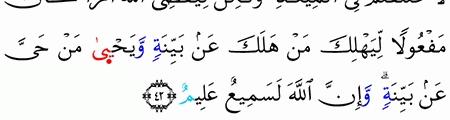 مَفْعُولًا لِّيَهْلِكَ مَنْ هَلَكَ عَنۢ بَيِّنَةٍ وَّيَحْيىٰ مَنْ حَىَّ
عَنۢ بَيِّنَةٍ ۗ وَّاِنَّ ٱللَّهَ لَسَمِيعٌ عَلِيمٌ ﴿٤٢﴾